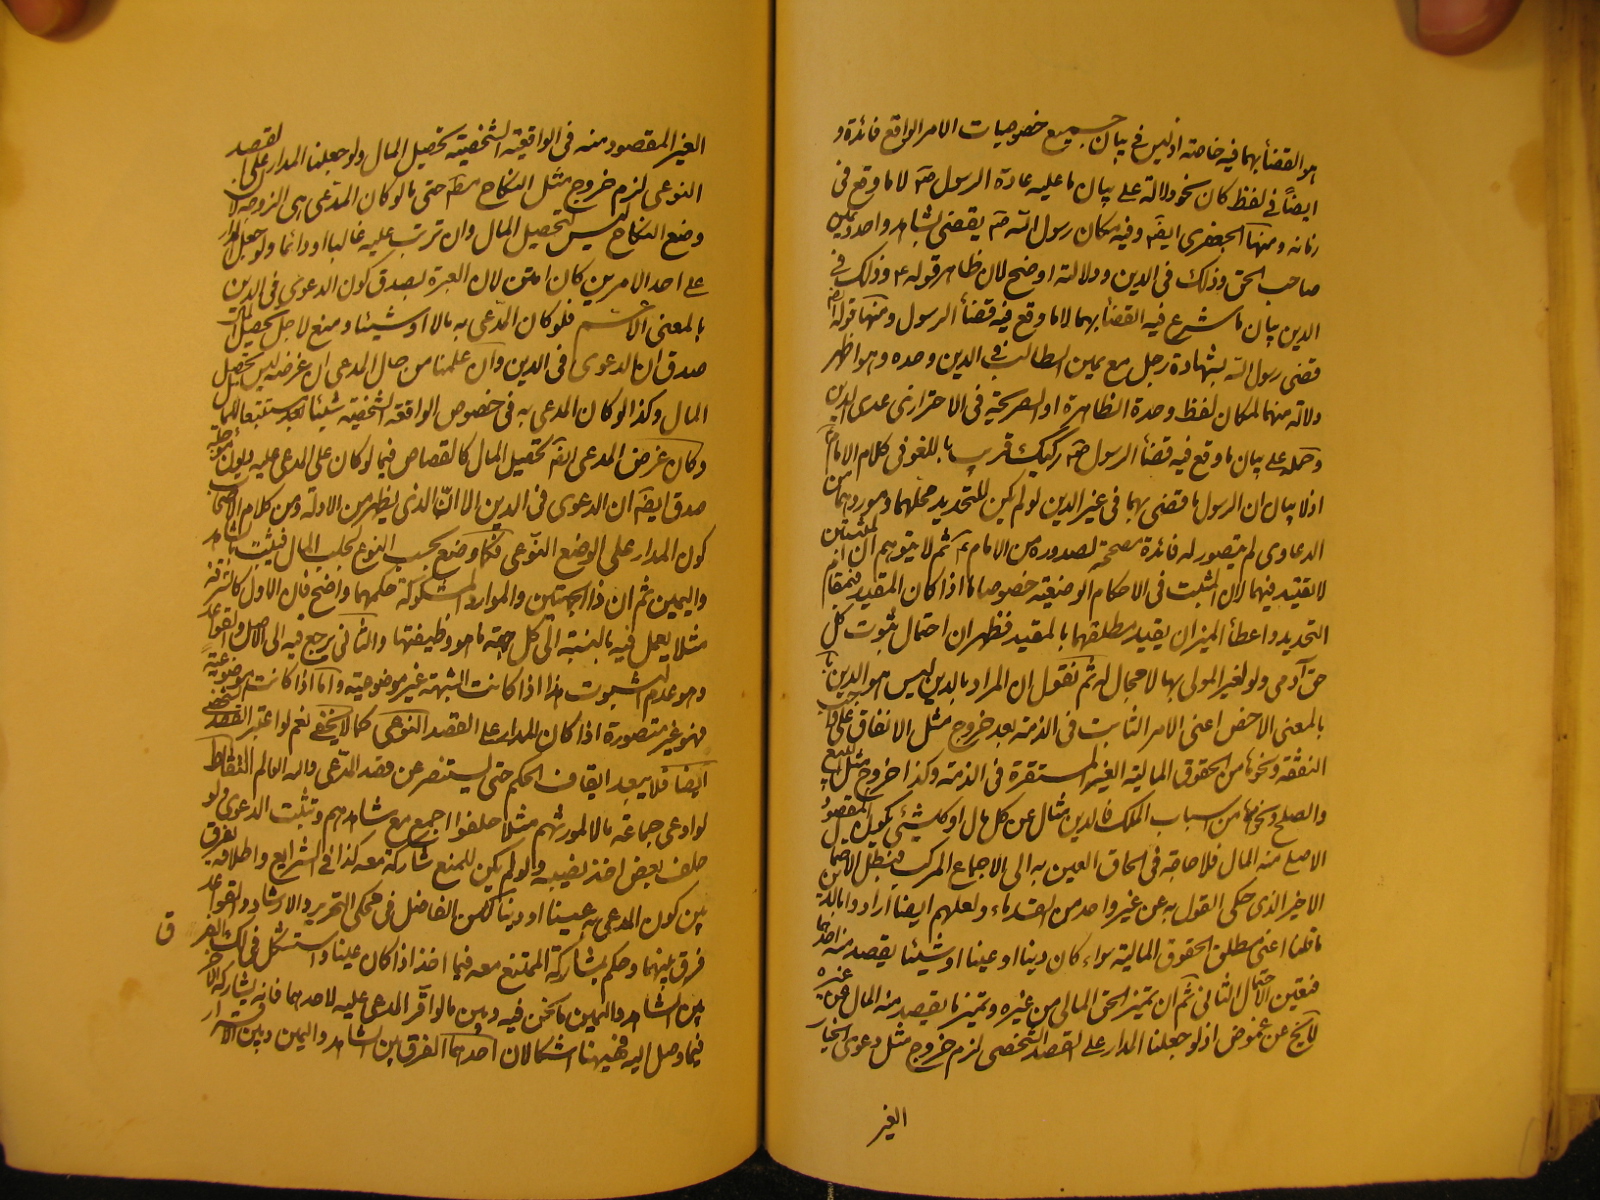 هو القضاء بهما فيه خاصته اذ ليس في بيان جميع خصوصيات الامر الواقع فائدة و
ايضاً في لفظ كان نحو دلالة على بيان ما عليه عادة الرسول صم لا ما وقع في
زمانه ومنها الجعفرى ايضه وفيه مكان رسول الله صم يقضى بشاهد واحد ويمين
صاحب الحق وذلك في الدين ودلالته اوضح لان ظاهر قوله ع وذلك في
الدين بيان ما شرع فيه القضاء بهما لا ما وقع فيه قضاء الرسول ومنها قوله ايضه
قضى رسول الله بشهادة رجل مع يمين الطالب في الدين وحده وهو اظهر
دلالة منهما لمكان لفظ وحدة الظاهرة او الصريحة في الاحترازى عدى الدين
وحمله على بيان ما وقع فيه قضاء الرسول صم ركيك قريب باللغو في كلام الامام ع
اذ لا بيان ان الرسول ما قضى بهما في غير الدين لو لم يكن للتحديد محلهما وموردهما من
الدعاوى لم يتصور له فائدة مصححة لصدوره من الامام ع ثم لا يتوهم ان المثبتين
لا تقييد فيهما لان المثبت في الاحكام الوضعية خصوصا اذا كان المقيد في مقام
التحديد واعطاء الميزان يقيد مطلقهما بالمقيد فظهر ان احتمال ثبوت كل
حق آدمى ولو لغير المولى بها لا مجال له ثم نقول ان المراد بالدين ليس هو الدين
بالمعنى الاخص اعنى الامر الثابت في الذمة بعد خروج مثل الانفاق على واجب
النفقة ونحوها من الحقوق المالية الغير المستقرة في الذمة وكذا خروج مثل البيع
والصلح ونحوهما من اسباب الملك فالدين مثال عن كل مال او كل شئ يكون المقصود
الاصلى منه المال فلا حاجة في الحاق العين به الى الاجماع المركب فبطل الاحتمال
الاخير الذى حكى القول به عن غير واحد من القدماء ولعلهم ايضا ارادوا بالدين
ما قلنا اعنى مطلق الحقوق المالية سواء كان دينا او عينا او شيئا يقصد منه احدهما
فتعين الاحتمال الثانى ثم ان تميز الحق المالى من غيره وتميز ما يقصد منه المال عن غيره
لا يخ عن غموض اذ لو جعلنا المدار على القصد الشخصى لزم خروج مثل دعوى الخيار
الغير
الغير المقصود منه في الواقعة الشخصية تحصيل المال ولو جعلنا المدار على القصد
النوعى لزم خروج مثل النكاح مطه حتى ما لو كان المدعى هى الزوجة لان
وضع النكاح ليس لتحصيل المال وان ترتب عليه غالبا او دائما ولو جعل المدار
على احد الامرين كان امتن لان العبرة بصدق كون الدعوى في الدين
بالمعنى الاعم فلو كان المدعى به مالا او شيئا وضع لاجل تحصيل المال
صدق ان الدعوى في الدين وان علمنا من حال المدعى ان غرضه ليس تحصيل
المال وكذا لو كان المدعى به في خصوص الواقعة الشخصية شيئا يعد مستتبعا للمال
وكان غرض المدعى ايضه تحصيل المال كالقصاص فيما لو كان على المدعى عليه ديون
صدق ايضه ان الدعوى في الدين الا ان الذى يظهر من الادلة ومن كلام الاصحاب
كون المدار على الوضع النوعى فكلما وضع بحسب النوع لجلب المال فيثبت بالشاهد
واليمين ثم ان ذا الجهتين والموارد المشكوكة حكمهما واضح فان الاول كالسرقة
مثلا يعمل فيه بالنسبة الى كل جهة ما هو وظيفتها والثانى يرجع فيه الى الاصل والقواعد
وهو عدم الثبوت هذا اذا كانت الشبهة غير موضوعية واما اذا كانت موضوعية
فهو غير متصورة اذا كان المدار على القصد النوعى كما لا يخفى نعم لو اعتبر القصد الشخصى
ايضا فلا يبعد ايقاف الحكم حتى يستفسر عن قصد المدعى والله العالم التقاط
لو ادعى جماعة مالا لمورثهم مثلا حلفوا اجمع مع شاهدهم وتثبت الدعوى ولو
حلف بعض اخذ نصيبه ولو لم يكن للمنع شاركته معه كذا في الشرايع واطلاقه يفرق
بين كون المدعى به عينا او دينا لكن الفاضل في محكى التحرير والارشاد والقواعد
فرق بينهما وحكم بمشاركة الممتنع معه فيما اخذ اذا كان عينا واستشكل في لك الفر ق
بين الشاهد واليمين ما نحن فيه وبين ما لو اقر المدعى عليه لاحدهما فانه يشاركه الاخر
فيما وصل اليه فهيهنا اشكالان احدهما الفرق بين الشاهد واليمين وبين الاقرار